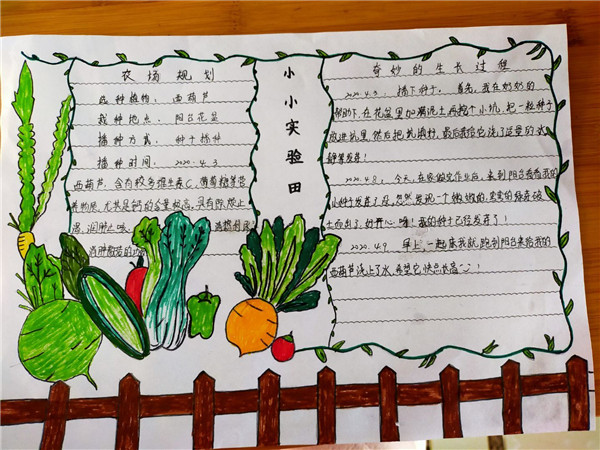 农场规划
选种植物：西葫芦
栽种地点：阳台花盆
播种方式：种子播种
播种时间：2020.4.3
西葫芦：含有较多维生素C、葡萄糖等营
养物质，尤其是钙的含量极高，具有除烦止
渴，润肺止咳、清热利尿
小小实验田
奇妙的生长过程
2020.4.3：播下种子。首先，我在奶奶的
帮助下，在花盆里加满泥土再挖个小坑，把一粒种子
放进坑里，然后把坑填好，最后我给它浇了适量的水
静等发芽！
2020.4.8，今天，在家做完作业后，来到阳台看看我的
小种子发芽了没，忽然发现一个嫩嫩的
土而出了，好开心呀！我的种子已经发芽了！
2020.4.9 早上，一起床我就跑到阳台来给我的
西葫芦浇上了水，希望它快点长高~~！